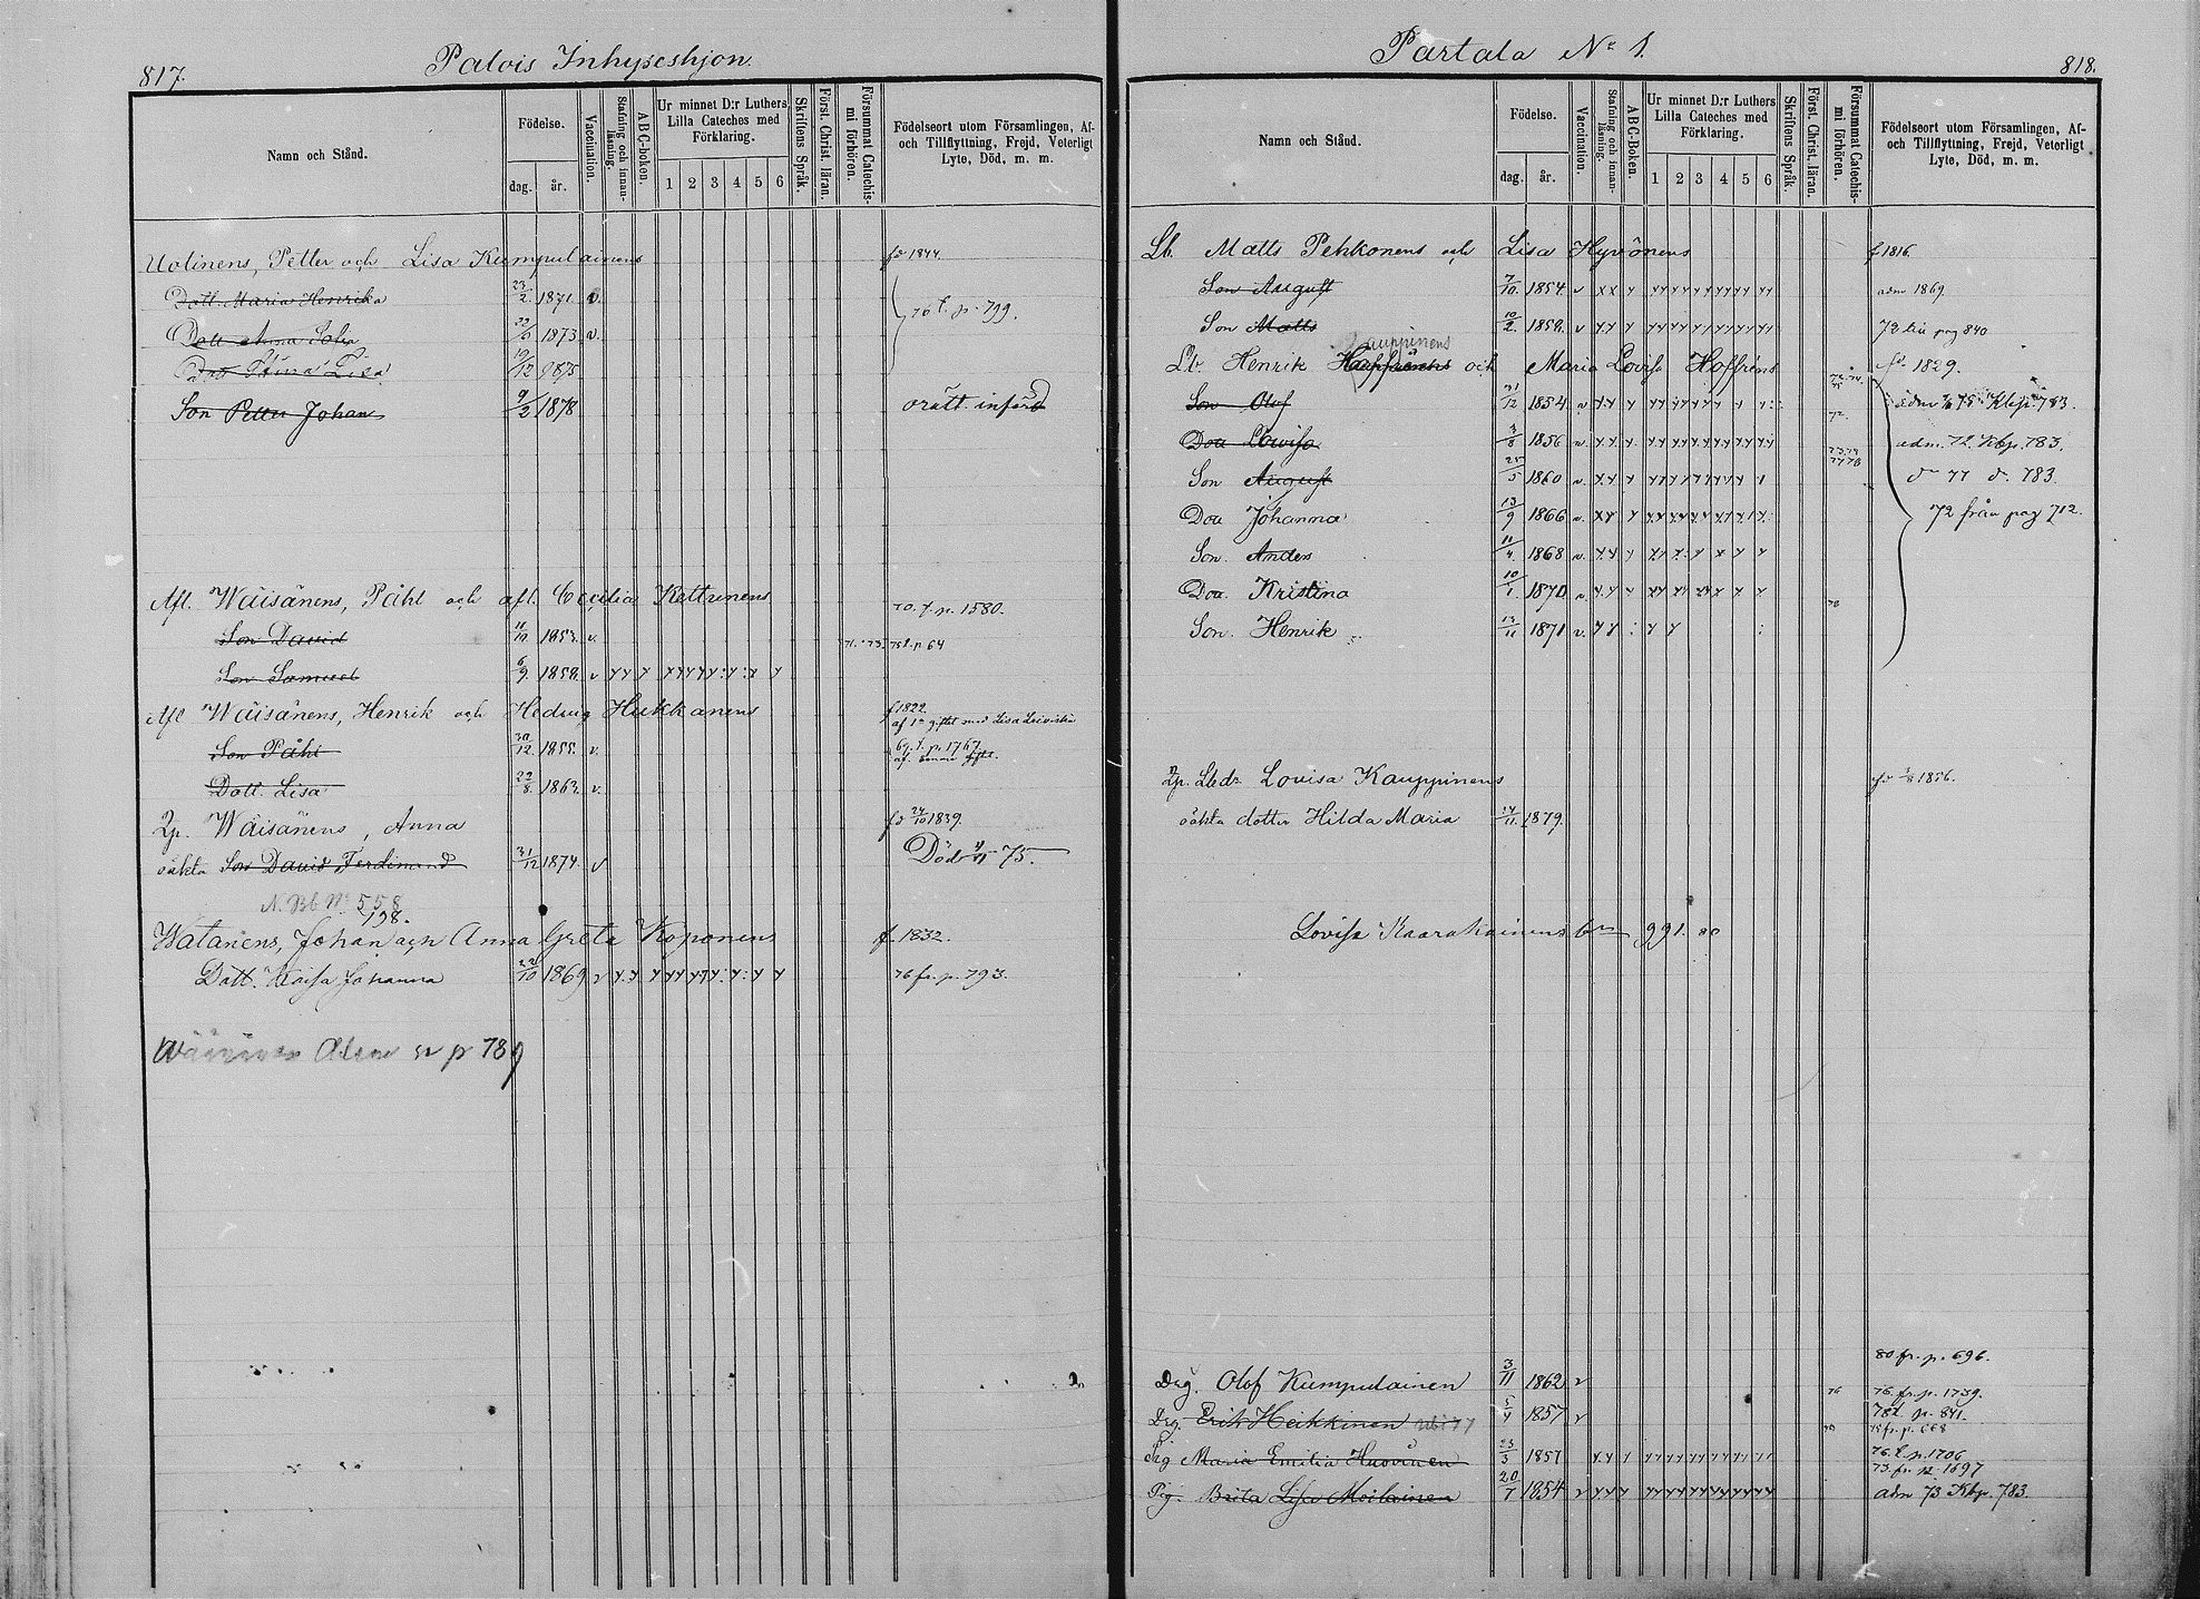 817.
Palois Inhyseshjon.
Namn och Stånd.
Födelse.
dag.
år.
Vaccination.
Stafning och innan-
läsning.
ABC-boken.
Ur minnet D:r Luthers
Lilla Cateches med
Förklaring.
1 2 3 4 5 6
Skriftens Språk.
Först. Christ. läran.
Försummat Catechis-
mi förhören.
Födelseort utom Församlingen, Af-
och Tillflyttning, Frejd, Veterligt
Lyte, Död, m. m.
Uotinens, Petter och Lisa Kumpulainens f. 1844.
Dott. Maria Henrika 23/2 1871 v.
Dott Anna Sofia 1873 v. 76 t. p. 799.
Dott Stina Lisa 19/12 1875
Son Petter Johan 9/2 1878 orätt. införd
Afl. Wäisänens, Påhl och afl. Cecilia Kettunens 70. t. p. 1580.
Son David 11/10 1853. v. 71.-73. 75 t. p 64
Son Samuel 6/9. 1858. v
Afl Wäisänens, Henrik och Hedvig Hukkanens f. 1822.
af 1:a giftet med Lisa
Son Påhl 30/12. 1855. v. 69. t. p. 1767
Dott. Lisa 22/8. 1863. v.
Qp. Wäisänens, Anna fd 24/10 1839.
oäkta Son David Ferdinand 31/12 1874. v Död 75.
N. Bb No 558
198.
Watanens, Johan och Anna Greta Koponens f. 1832.
Dott. Kaisa Johanna 22/10 1869 v 76 fr. p. 793.
p 789
Partala No 1.
818.
Namn och Stånd.
Födelse.
dag.
år.
Vaccination.
Stafning och innan-
läsning.
ABC-Boken.
Ur minnet D:r Luthers
Lilla Cateches med
Förklaring.
1 2 3 4 5 6
Skriftens Språk.
Först. Christ. läran.
Försummat Catechis-
mi förhören.
Födelseort utom Församlingen, Af-
och Tillflyttning, Frejd, Veterligt
Lyte, Död, m. m.
Lb. Matts Pehkonens och Lisa Hyvönens f 1816.
Son August 7/10. 1854. v adm 1869.
Son Matts 10/2. 1858. v 72 till pag 840
auppinens
Lb. Henrik och Maria Lovisa Hoffréns fd. 1829.
Son Olof 31/12 1854 v
Dott Lovisa 3/8 1856 v. adm. 72. Kbp. 783.
Son August 25/5 1860 v. d:o 77 d:o. 783.
Dott Johanna 13/9 1866 v. 72 från pag 712.
Son. Anders 11/4. 1868 v.
Dott. Kristina 10/1. 1870 v.
Son. Henrik 13/11 1871 v.
Qp. Lbdr. Lovisa Kauppinens fd 3/8 1856.
oäkta dotter Hilda Maria 1879.
Lovisa Kaarakainens 991. 80
80 fr. p. 696.
Drg. Olof Kumpulainen 3/11 1862 v
76. fr. p. 1739.
Drg. Erik Heikkinen 5/4 1857 v 78 t. p. 841.
Pig Maria Emilia Huovinen 23/3 1857 76. t. p. 1706
73. fr. p. 1697
Pig. Brita Lisa Moilainen 20/7 1854 v adm 73 Kbp. 783.